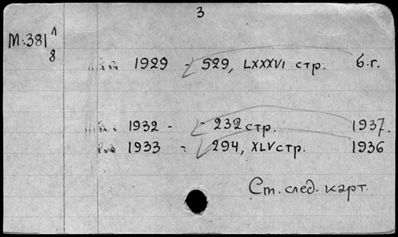 3
М.381 1/8
1929 - 529, LXXXVI стр. б.г.
1932 - - 232 стр. 1937.
1933 - 294, XLV стр. 1936
См. след. карт.